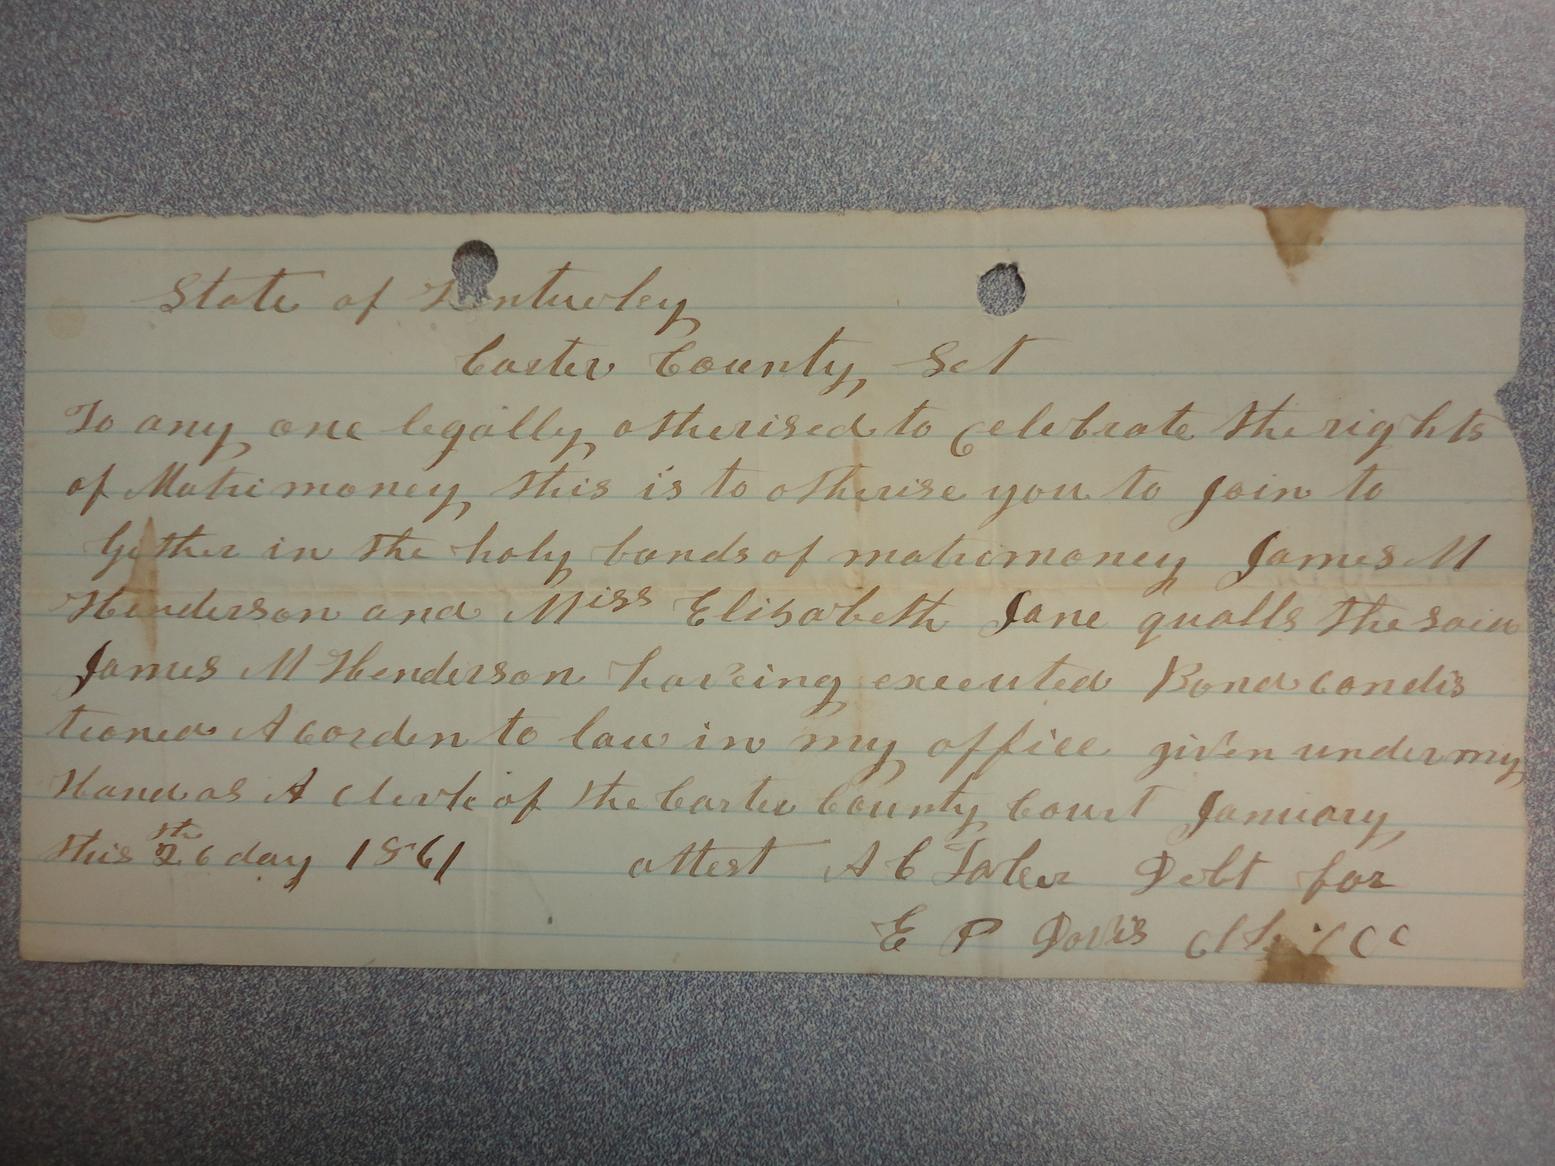 State of Kentuckey
Carter County Set
To any one legally otherised to Celebrate the rights
of Matrimoney this is to otherise you to Join to
Gether in the holy bonds of matrimoney James M
Henderson and Miss Elisabeth Jane qualls the said
James M Henderson haveing executed Bond condis
tioned Acorden to law in my office given under my
Hand as A clerk of the Carter County Court January
this 26th day 1861 attest A C Debt for
E P Davis C C